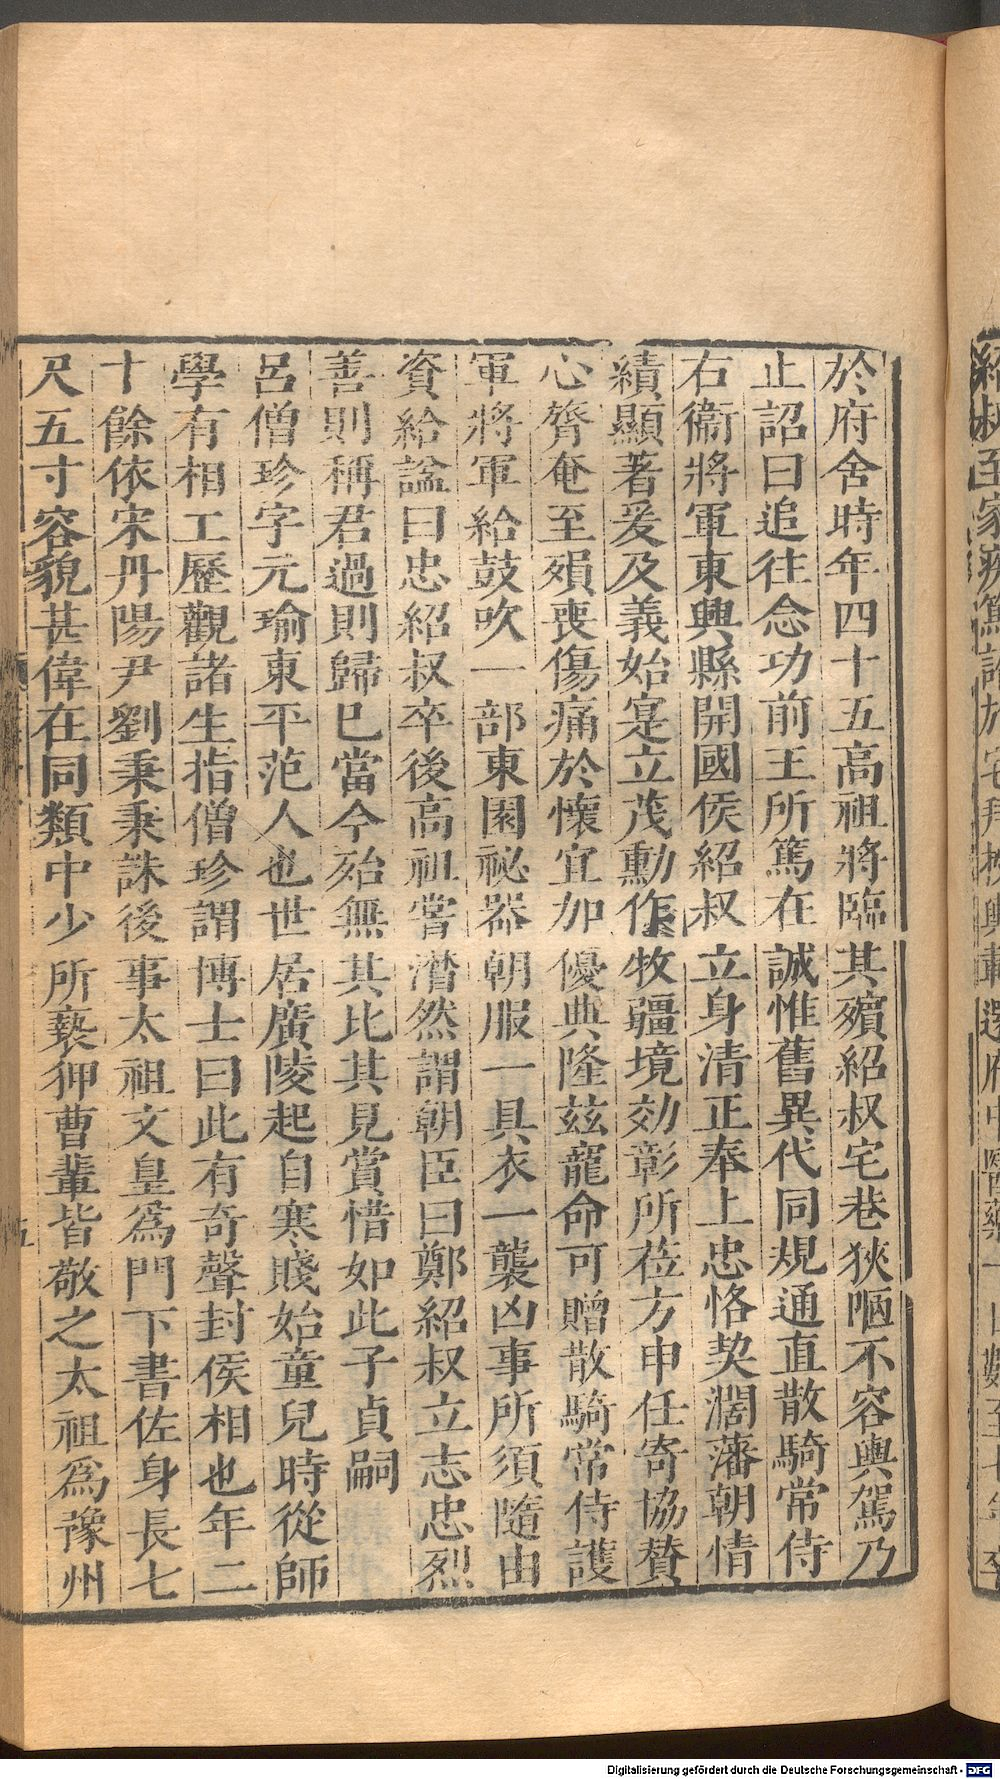 於府舍時年四十五高祖將臨其殯紹叔宅巷狹陋不容輿駕乃
止詔曰追往念功前王所篤在誠惟舊異代同規通直散騎常侍
右衞將軍東興縣開國侯紹叔立身清正奉上忠恪契濶藩朝情
績顯著爰及義始寔立茂勳作牧疆境効彰所莅方申任寄協賛
心膂奄至殞喪傷痛於懷宜加優典隆兹寵命可贈散騎常侍護
軍將軍給鼓吹一部東園祕器朝服一具衣一襲凶事所須隨由
資給謚曰忠紹叔卒後高祖嘗潸然謂朝臣曰鄭紹叔立志忠烈
善則稱君過則歸已當今殆無其比其見賞惜如此子貞嗣
呂僧珍字元瑜東平范人也世居廣陵起自寒賤始童兒時從師
學有相工歷觀諸生指僧珍謂博士曰此有奇聲封侯相也年二
十餘依宋丹陽尹劉秉秉誅後事太祖文皇爲門下書佐身長七
尺五寸容貌甚偉在同類中少所褻狎曹輩皆敬之太祖爲豫州
五
Digitalisierung gefördert durch die Deutsche Forschungsgemeinschaft - DFG